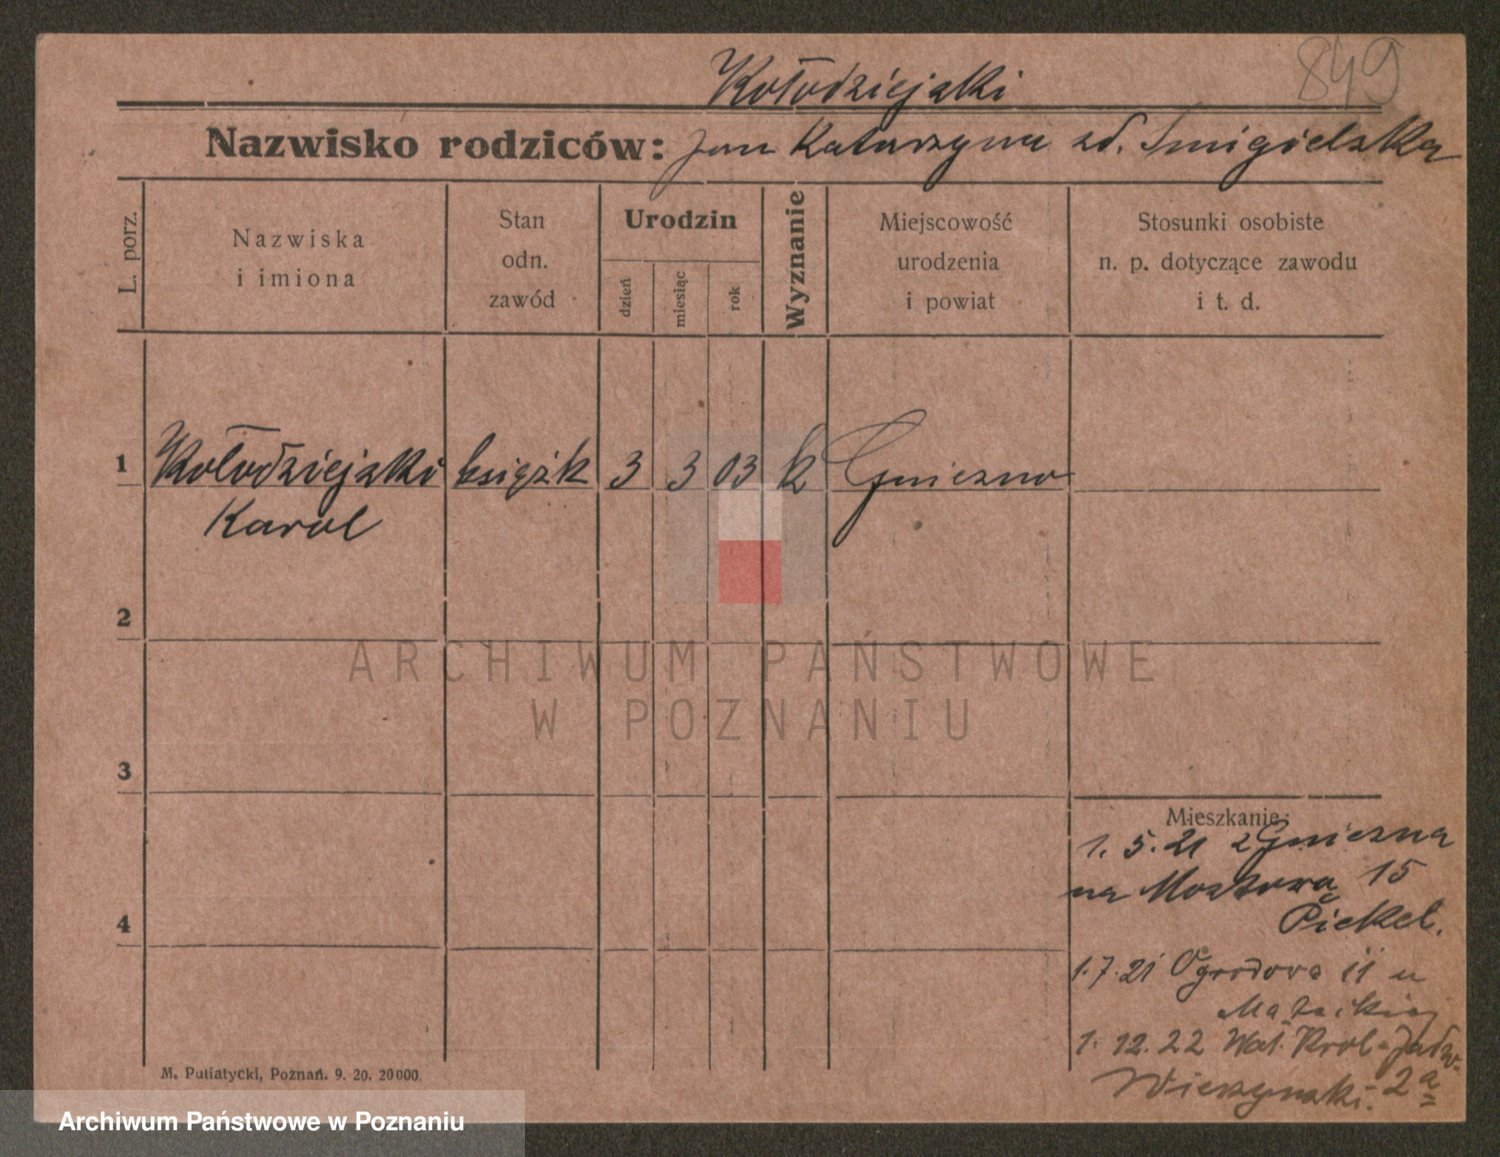 849
Kołodziejski
Nazwisko rodziców: Jan Katarzyna zd. Smigielska
L. porz.
Nazwiska
i imiona
Stan
odn.
zawód
Urodzin
dzień
miesiąc
rok
Wyznanie
Miejscowość
urodzenia
i powiat
Stosunki osobiste
n. p. dotyczące zawodu
i t. d.
1 Kołodziejski książk 3 3 03 k Gniezno
Karol
2
ARCHIWUM PAŃSTWOWE
W POZNANIU
3
Mieszkanie:
1. 5. 21 z Gniezna
na Mostową 15
Piekel.
4
1. 7. 21 Ogrodowa 11 u
1. 12. 22 Wał. Król. Jadw.
2a
M. Putiatycki, Poznań. 9. 20. 20000.
Archiwum Państwowe w Poznaniu